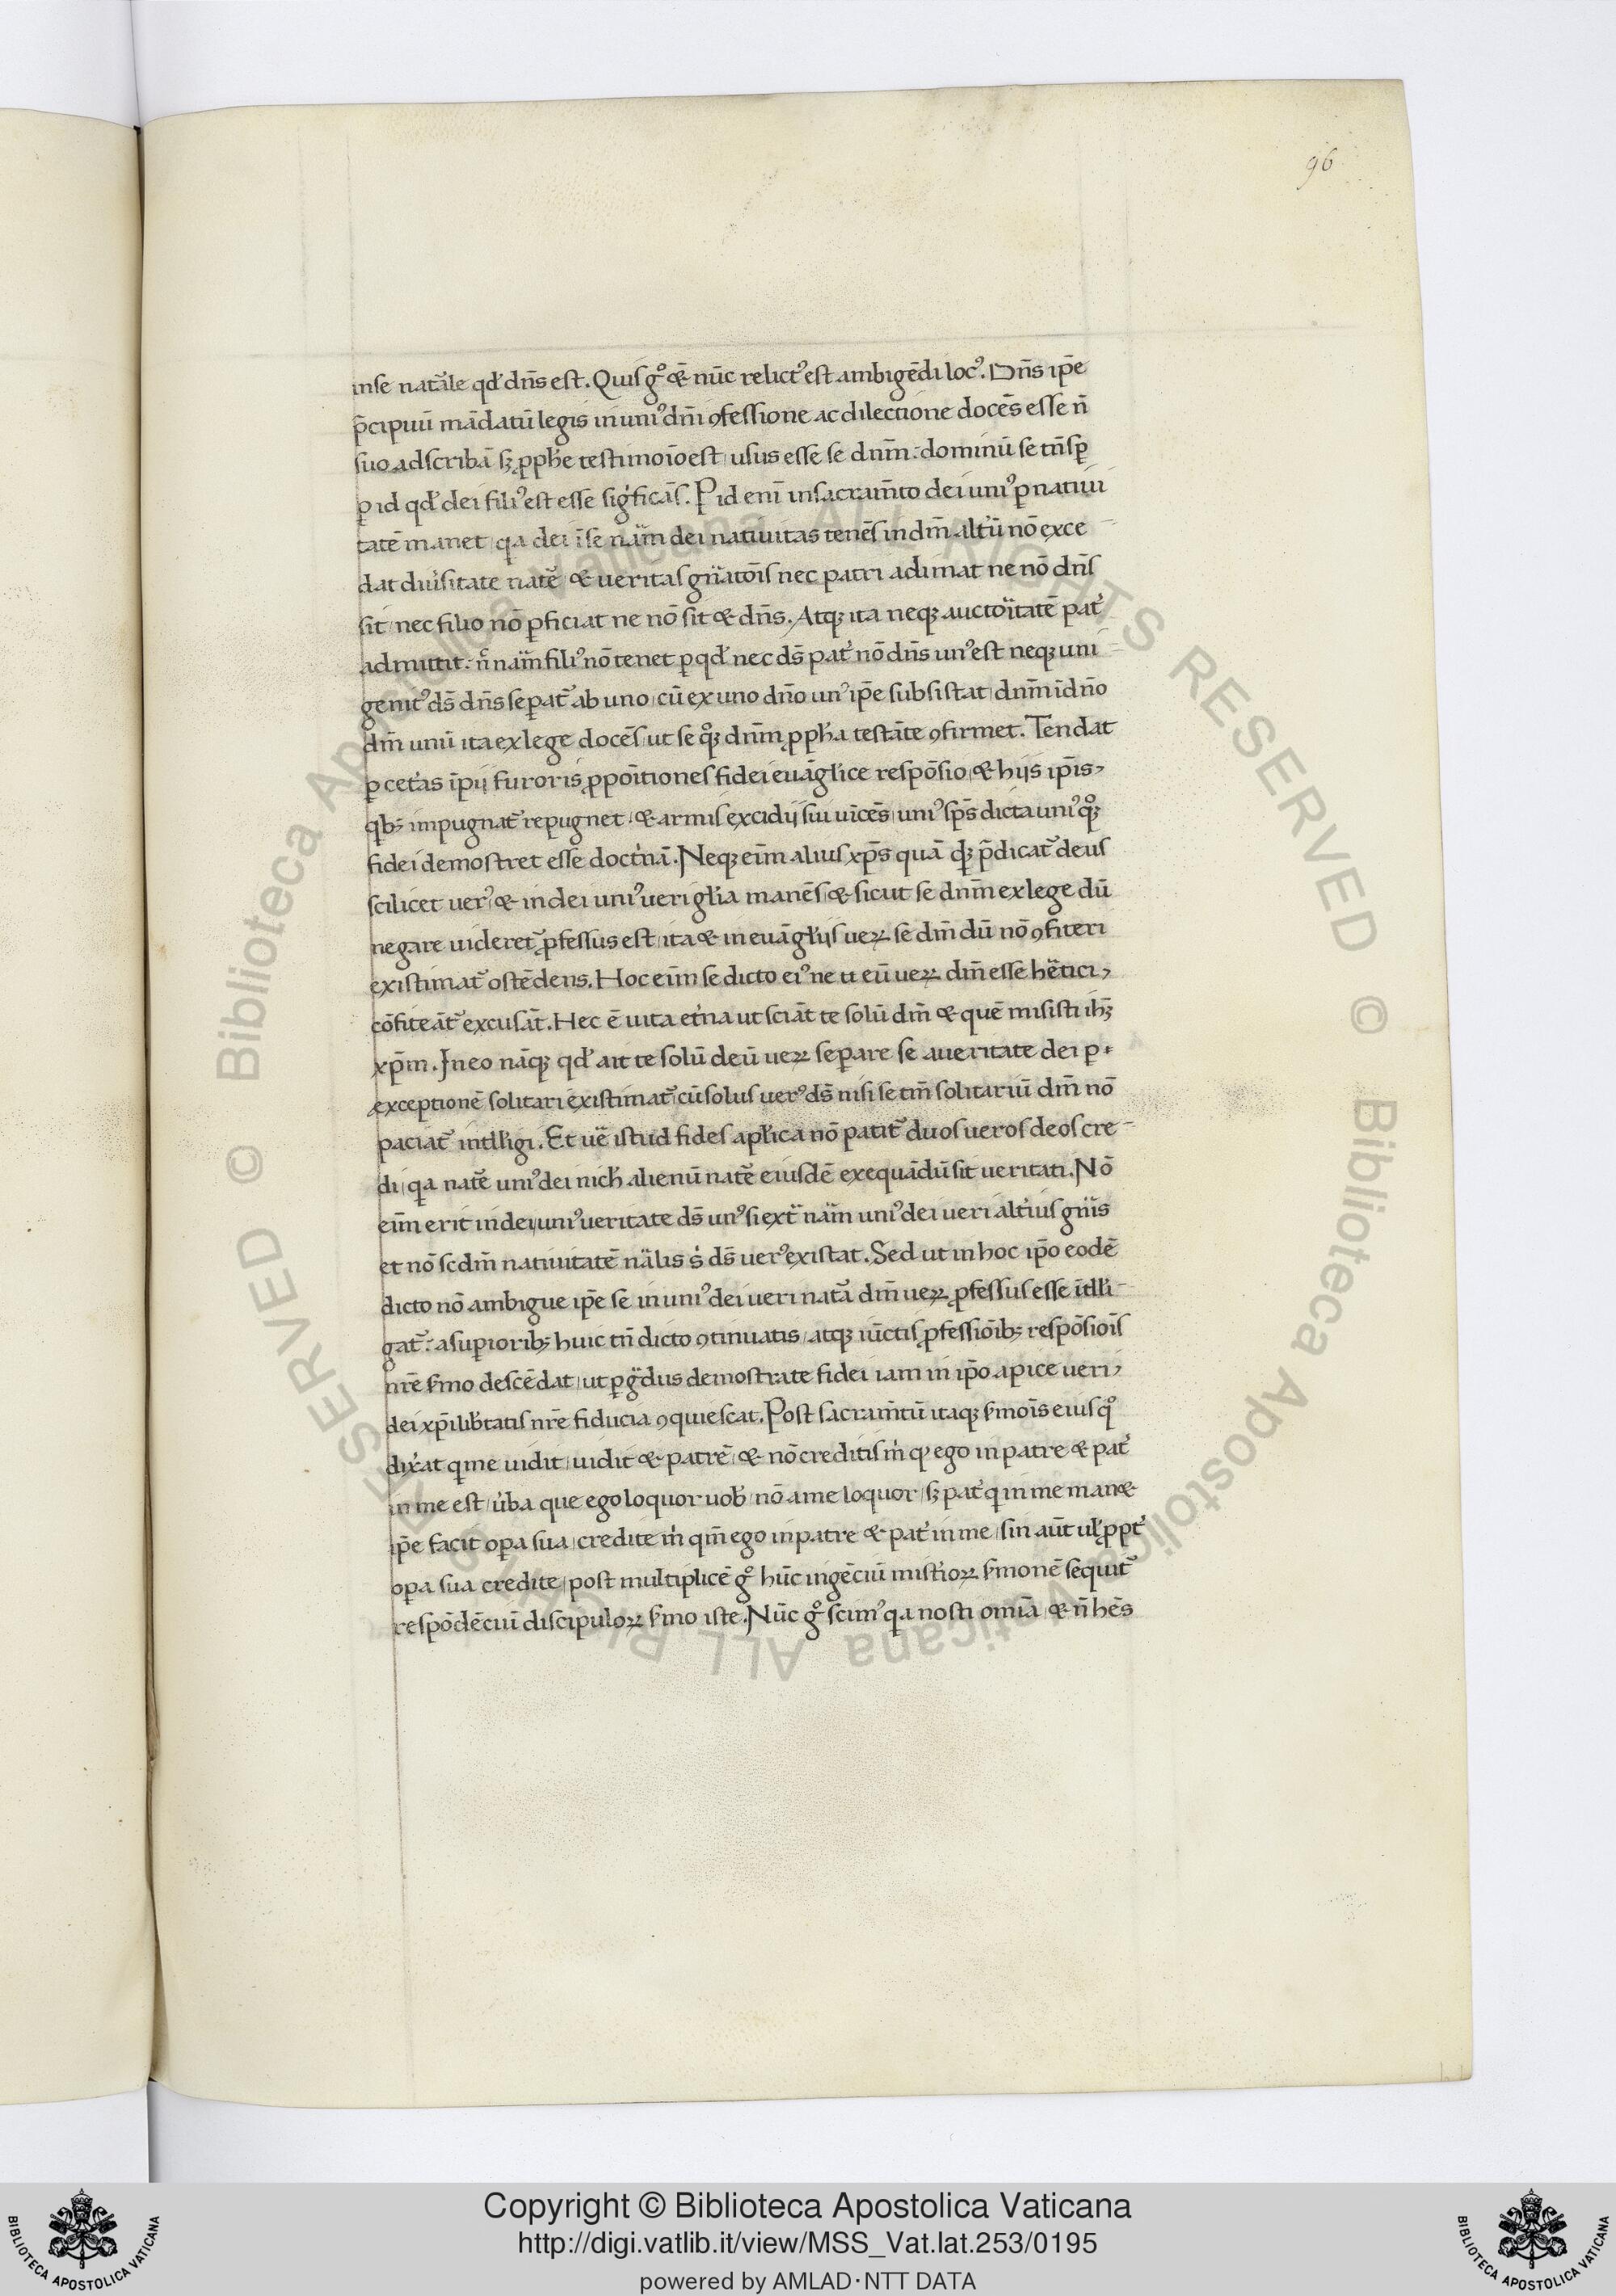 96
inse natᷓale qd̓ dn̄s est. Quis gͦ & nūc relictꝰ est ambigēdi locꝰ. Dn̄s ip̄e
p̄cipuū mādatū legis in uniꝰ dm̄i ꝯfessione ac dilectione docēs esse n̄
suo adscribā sꝫ ꝓph̓e testimoīo est usus esse se dnm̄: dominū se tn̄ sꝑ
ꝑ id qd̓ dei filiꝰ est esse sigͥficās. Pid enī in sacram̄to dei uniꝰ ꝑ natiui
tatē manet, qa dei īse nam̄ dei natiuitas tenēs in dm̄ altū nō exce
dat diu̓sitate nat̄e & ueritas gn̄atōis nec patri adimat ne nō dn̄s
sit, nec filio nō ꝓficiat ne nō sit & dn̄s. Atqꝫ ita neqꝫ auctoītatē pat̓
admittit: nͨ nam̄ filiꝰ nō tenet ꝑ qd̓ nec ds̄ pat̓ nō dn̄s unꝰ est neqꝫ uni
genitꝰ ds̄ dn̄s seꝑat᷑ ab uno, cū ex uno dn̄o unꝰ ip̄e subsistat, dnm̄ ī dn̄o
dm̄ unū ita ex lege docēs, ut se qͦꝫ dnm̄ ꝓph̓a testāte ꝯfirmet. Tendat
ꝑ cet̓as īpij furoris ꝓpoītiones fidei euāgl̓ice respōsio, & hijs ip̄is,
qbꝫ impugnat᷑ repugnet, & armis excidij sui uīcēs, uniꝰ sp̄s dicta uniꝰ qͦꝫ
fidei demostret esse doct̓nā. Neqꝫ eim̄ alius xp̄s quā qͥꝫ p̄dicat᷑ deus
scilicet uerꝰ, & in dei uniꝰ ueri gl̓ia manēs, & sicut se dnm̄ ex lege dū
negare uideret᷑ ꝓfessus est, ita & in euāgl̓ijs ueꝝ se dm̄ dū nō ꝯfiteri
existimat᷑ ostēdens. Hoc eim̄ se dicto eiꝰ ne ut eū ueꝝ dm̄ esse hētici,
cōfiteāt᷑ excusāt. Hec ē uita et̓na ut sciāt te solū dm̄ & quē misisti ih̄ꝫ
xp̄m. In eo nāqꝫ qd̓ ait te solū deū ueꝝ seꝑare se a ueritate dei ꝑ
exceptionē solitari existimat᷑, cū solus uerꝰ ds̄ nisi se tm̄ solitariū dm̄ nō
paciat᷑ intll̓igi. Et ue᷒ istud fides apl̓ica nō patit᷑ duos ueros deos cre
di, qa nat̄e uniꝰ dei nich̓ alienū nat̄e eiusdē exequādū sit ueritati. Nō
eim̄ erit in dei uniꝰ ueritate ds̄ unꝰ si ext᷑ nam̄ uniꝰ dei ueri alt̓ius gn̄is
et nō scdm̄ natiuitatē nālis s̓ ds̄ uerꝰ existat. Sed ut in hoc ip̄o eodē
dicto nō ambigue ip̄e se in uniꝰ dei ueri natā dm̄ ueꝝ ꝓfessus esse ītll̓i
gat᷑: a superioribꝫ huic tn̄ dicto ꝯtinuatis, atqꝫ iūctis ꝓfessiōibꝫ respōsiōis
nr̄e s̓mo descēdat, ut ꝑ gᷓdus demostrate fidei iam in ip̄o apice ueri,
dei xp̄i lib̓tatis nr̄e fiducia ꝯquiescat. Post sacram̄tū itaqꝫ s̓mois eius qͦ
dix̓at qͥ me uidit, uidit & patrē, & nō creditis m̓ qꝰ ego in patre & pat̓
in me est, u̓ba que ego loquor uob̓ nō a me loquor, sꝫ pat̓ qͥ in me man&
ip̄e facit oꝑa sua, credite m̓ qm̄ ego in patre & pat̓ in me, sin aūt ul̓ ꝓpt̓
oꝑa sua credite, post multiplicē gͦ hūc ingēciū mist̓ioꝝ s̓monē sequit᷑
respōdēciū discipuloꝝ s̓mo iste. Nūc gͦ scimꝰ qa nosti omīa, & n̄ hēs
Copyright © Biblioteca Apostolica Vaticana
http://digi.vatlib.it/view/MSS_Vat.lat.253/0195
powered by AMLAD·NTT DATA
BIBLIOTECA APOSTOLICA VATICANA
BIBLIOTECA APOSTOLICA VATICANA
© Biblioteca Apostolica Vaticana ALL RIGHTS RESERVED
© Biblioteca Apostolica Vaticana ALL RIGHTS RESERVED